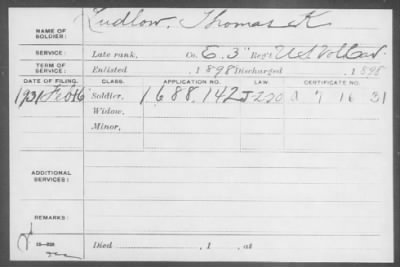 NAME OF SOLDIER: Ludlow, Thomas K
SERVICE: Late rank, Co. E. 3" Reg't U S Vol Cav
TERM OF SERVICE: Enlisted , 1898 Discharged , 1898
DATE OF FILING. CLASS. APPLICATION NO. LAW. CERTIFICATE NO.
1931 Feb 16 Soldier, 1688,142 J-220 a 7 16 31
Widow,
Minor,
ADDITIONAL SERVICES:
REMARKS:
Died , 1 , at